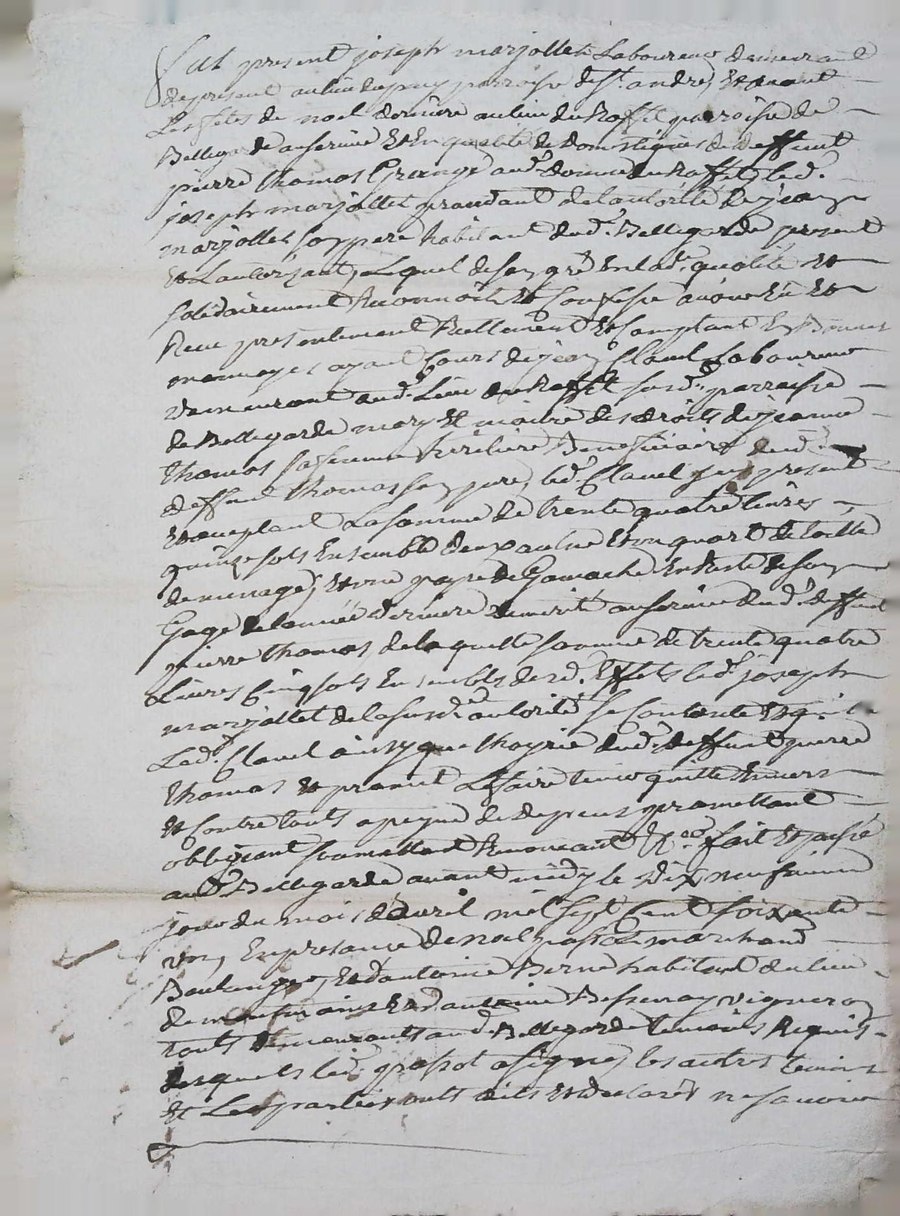 fut present joseph marjollet Laboureur demeurant
de present au lieu de puy parroise de St. andre, Et avant
Les fetes de noel derniere au lieu du Raffit parroise de
Bellegarde en forine Et En qualité de domestique de deffunt
pierre thomas Grangé aud. domaine Raffit, led.
joseph marjollet procedant de l'autorité de jean
marjollet son pere habitant dud. Bellegarde present
Et L'autorisant, Lequel de son gré En lad. qualité Et
solidairement Reconnoit Et Confesse avoir Eü Et
Receu presentement Reellement Et Comptant En Bonnes
monnoyes ayant Cours de jean Clavel Laboureur
demeurant aud. Lieu du Raffit susd. parroisse
de Bellegarde mary Et maitre des droits de jeanne
thomas sa femme heritiere Beneficiaire dud.
deffunt thomas son pere, led. Clavel present
Et acceptant La somme de trente quatre livres
quinze sols Ensemble deux aulne Et un quart de toille
de menage, Et une payre de Gamache En Reste de son
Gage de l'année derniere au service dud. deffunt
pierre thomas, de laquelle somme de trente quatre
Livres Cinq sols Ensembles desd. Effets led. joseph
marjollet de la susd. autorité se Contente Et quitte
Lad. Clavel ainsy que l'hoyrie dud. deffunt pierre
thomas Et promet Le faire tenir quitte Envers
Et Contre touts a peyne de depens promettant
obligeant soumettant Renonceant &ca. fait Et passé
aud. Bellegarde avant midy le Dix neufvieme
jour du mois d'avril mil sept Cent soixante
un, En presance de noel passot marchand
Boulanger, Et d'antoine Berne habitant du lieu
de Et d'antoine Bessenay vigneron
touts demeurants aud. Bellegarde temoins Requis
desquels led. passot a signé, les autres temoins
Et Les parties ont dits Et declarés ne scavoir